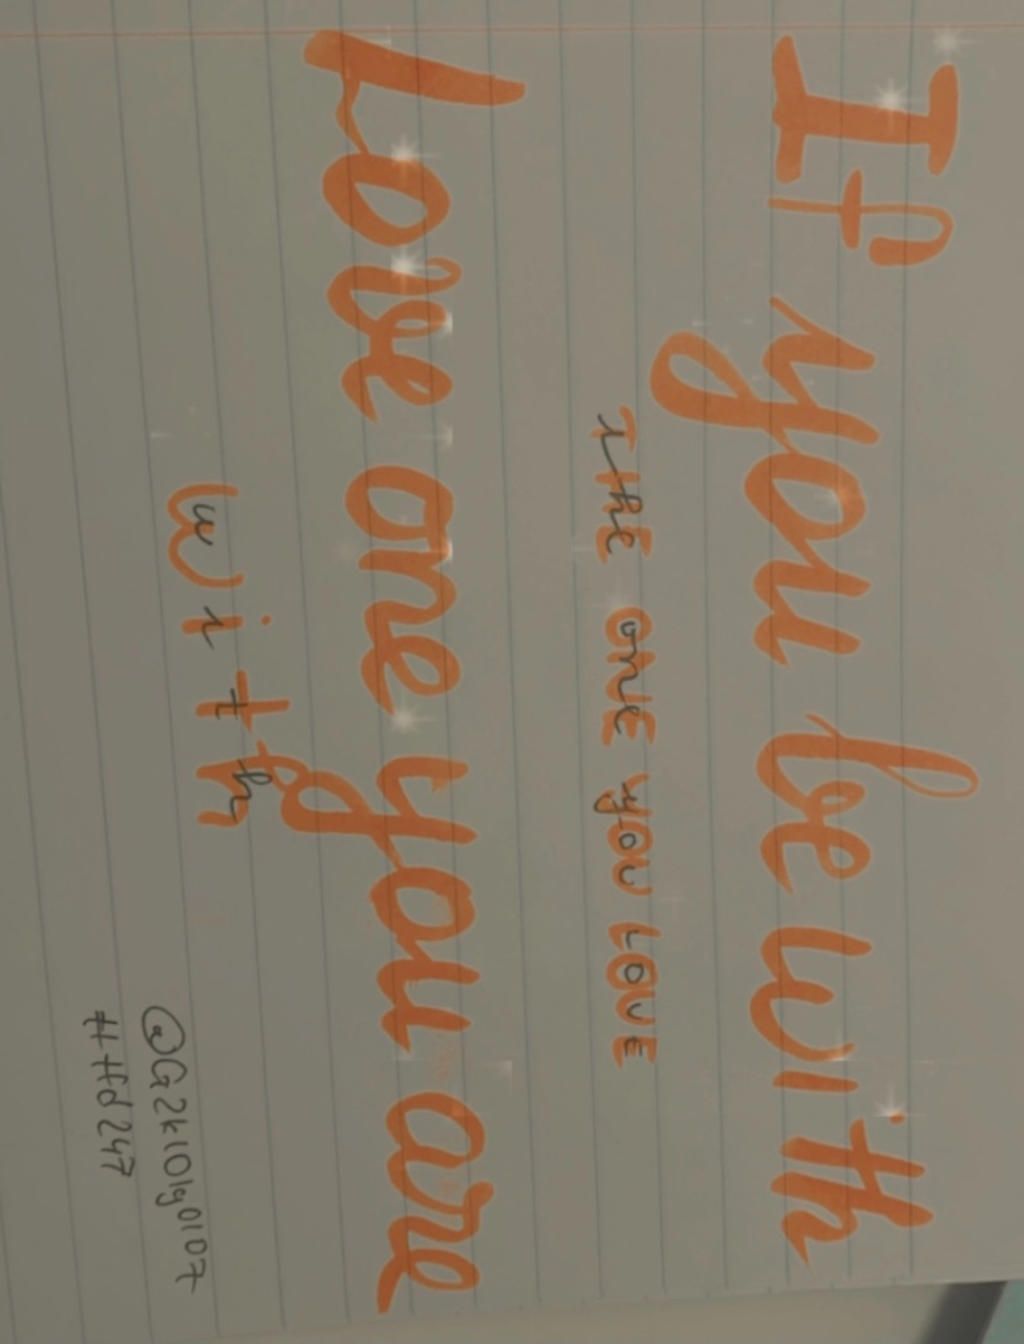 If you be with
THE ONE YOU LOVE
Love one you are
with
@G2k101g0107
#Hd247